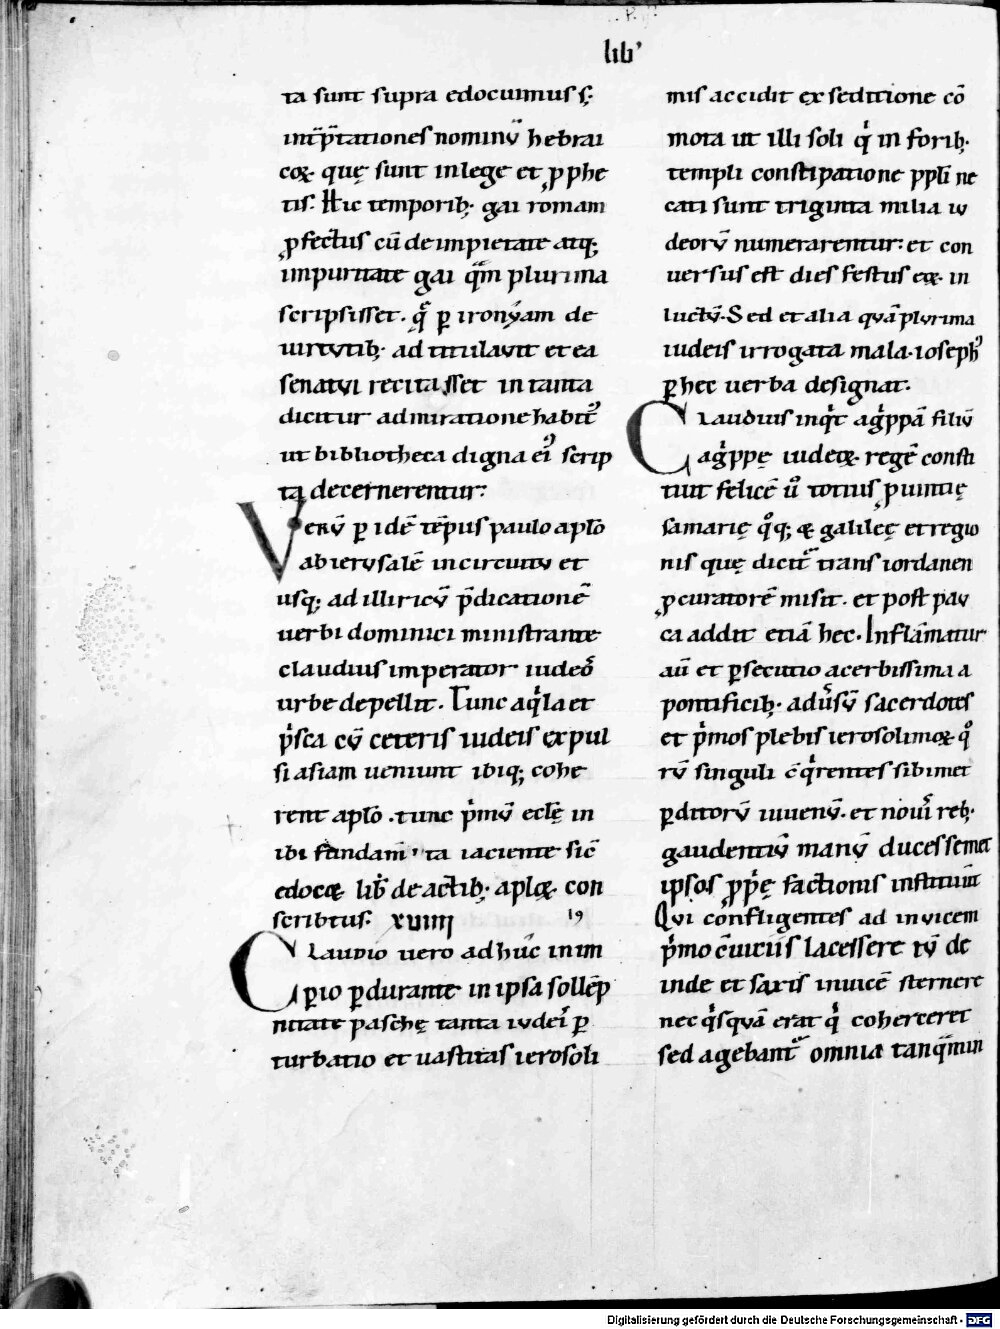 lib’
ta sunt supra edocuimus ·s·
int̄p̄tationes nominū hebrai
coꝝ· quę sunt in lege et ꝓphe
tis· Hic temporibꝫ· gai romam
ꝓfectus cū de impietate atqꝫ
impuritate gai qͣm plurima
scripsisset· qͣ̄ ꝑ ironẏam de
uirtutibꝫ· ad titulauit et ea
senatui recitasset in tanta
dicitur admiratione habit᷒
ut bibliotheca digna ei᷒ scrip
ta decernerentur:
Verū ꝑ idē tēpus paulo aplō
ab ierusalē in circuitu et
usqꝫ ad illiricū p̄dicationē
uerbi dominici ministrante
claudius imperator iudeoˢ
urbe depellit· Tunc aqⁱla et
pⁱsca cū ceteris iudeis expul
si asiam ueniunt ibiqꝫ cohe
rent aplō· tunc pⁱmū eclę in
ibi fundam̄ta iaciente sic̄
edocꝫ lib̄ de actibꝫ· aploꝝ· con
scribtus· xuiiii 19
Claudio uero ad huc̄ in im
ꝑio ꝑdurante in ipsa sollēp
nitate paschę tanta iudeiˢ ꝑ
turbatio et uastitas ierosoli
mis accidit ex seditione cō
mota ut illi soli qⁱ in foribꝫ·
templi constipatione ppl̄i ne
cati sunt triginta milia iu
deorū numerarentur: et con
uersus est dies festus eoꝝ· in
luctū· Sed et alia quā plurima
iudeis irrogata mala· ioseph᷒
ꝑ hec uerba designat·
Claudius inqⁱt agⁱppā filiū
agⁱppę iudeoꝝ· regē consti
tuit felicē uͦ totius ꝓuintię
samarię qͦqꝫ & galileę et regio
nis quę dicit᷒ trans iordanen
ꝓcuratorē misit· et post pau
ca addit etiā hec· Inflāmatur
aū et ꝑsecutio acerbissima a
pontificibꝫ· aduˢsū sacerdotes
et pⁱmos plebis ierosolimoꝝ qͦ
rū singuli c̄qⁱrentes sibimet
ꝑditorū iuuenū· et nouiˢ rebꝫ·
gaudentiū manū duces semet
ipsos ꝓpę factionis instituūt
Qui confligentes ad inuicem
pⁱmo c̄uiciis lacessere tū de
inde et saxis inuicē sternere
nec qⁱsquā erat qⁱ coherceret
sed agebant᷒ omnia tanqͣm in
Digitalisierung gefördert durch die Deutsche Forschungsgemeinschaft - DFG